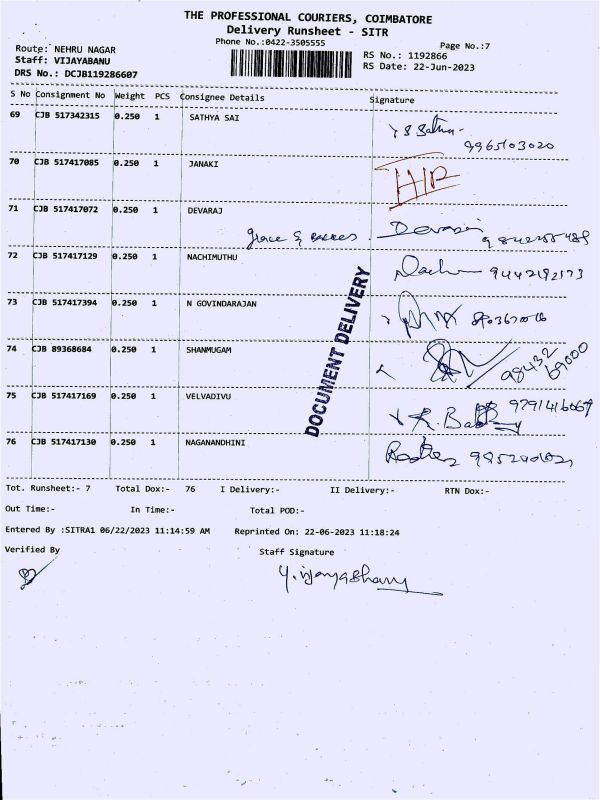 THE PROFESSIONAL COURIERS, COIMBATORE
Delivery Runsheet - SITR
Phone No.:0422-3505555
Page No.:7
Route: NEHRU NAGAR
RS No.: 1192866
Staff: VIJAYABANU
RS Date: 22-Jun-2023
DRS No.: DCJB119286607
S No Consignment No Weight PCS Consignee Details Signature
69 CJB 517342315 0.250 1 SATHYA SAI
9965103020
70 CJB 517417085 0.250 1 JANAKI
71 CJB 517417072 0.250 1 DEVARAJ
Devaraj
72 CJB 517417129 0.250 1 NACHIMUTHU
9442192173
73 CJB 517417394 0.250 1 N GOVINDARAJAN
74 CJB 89368684 0.250 1 SHANMUGAM
98432 69000
75 CJB 517417169 0.250 1 VELVADIVU
9791416667
76 CJB 517417130 0.250 1 NAGANANDHINI
DOCUMENT DELIVERY
Tot. Runsheet:- 7 Total Dox:- 76 I Delivery:- II Delivery:- RTN Dox:-
Out Time:- In Time:- Total POD:-
Entered By :SITRA1 06/22/2023 11:14:59 AM Reprinted On: 22-06-2023 11:18:24
Verified By Staff Signature